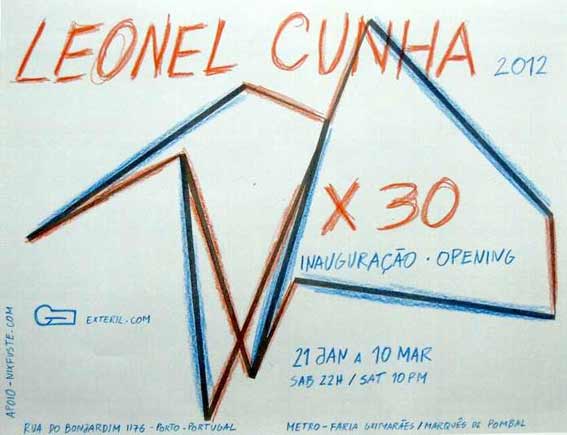 LEONEL CUNHA 2012
X 30
INAUGURAÇÃO · OPENING
EXTERIL.COM
21 JAN A 10 MAR
SAB 22H / SAT 10PM
APOIO - NIXFUSTE.COM
RUA DO BONJARDIM 1176 - PORTO - PORTUGAL
METRO - FARIA GUIMARÃES / MARQUÊS DE POMBAL